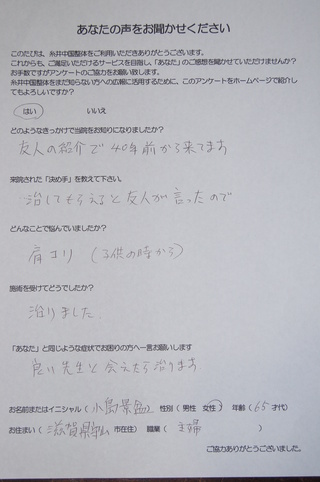 あなたの声をお聞かせください
このたびは、糸井中国整体をご利用いただきありがとうございます。
これからも、ご満足いただけるサービスを目指し、「あなた」のご感想を聞かせていただけませんか?
お手数ですがアンケートのご協力をお願い致します。
糸井中国整体をまだ知らない方への広報に活用するために、このアンケートをホームページで紹介し
てもよろしいですか?
はい いいえ
どのようなきっかけで当院をお知りになりましたか?
友人の紹介で40年前から来てます
来院された「決め手」を教えて下さい。
治してもらえると友人が言ったので
どんなことで悩んでいましたか?
肩コリ (子供の時から)
施術を受けてどうでしたか?
治りました。
「あなた」と同じような症状でお困りの方へ一言お願いします
良い先生と会えたら治ります
お名前またはイニシャル(小島景 ) 性別(男性 女性) 年齢(65才代)
お住まい(滋賀県 市在住) 職業( 主婦 )
ご協力ありがとうございました。